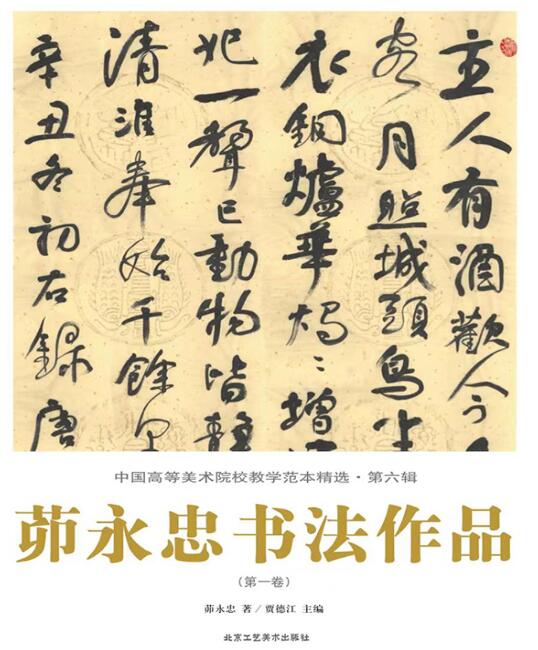 主人有酒歡今
客月照城頭烏半
衣銅爐華燭〻增
妃一聲已動物皆靜
清淮奉始千餘里
辛丑冬初右録唐
中国高等美术院校教学范本精选·第六辑
茆永忠书法作品
(第一卷)
茆永忠 著／贾德江 主编
北京工艺美术出版社